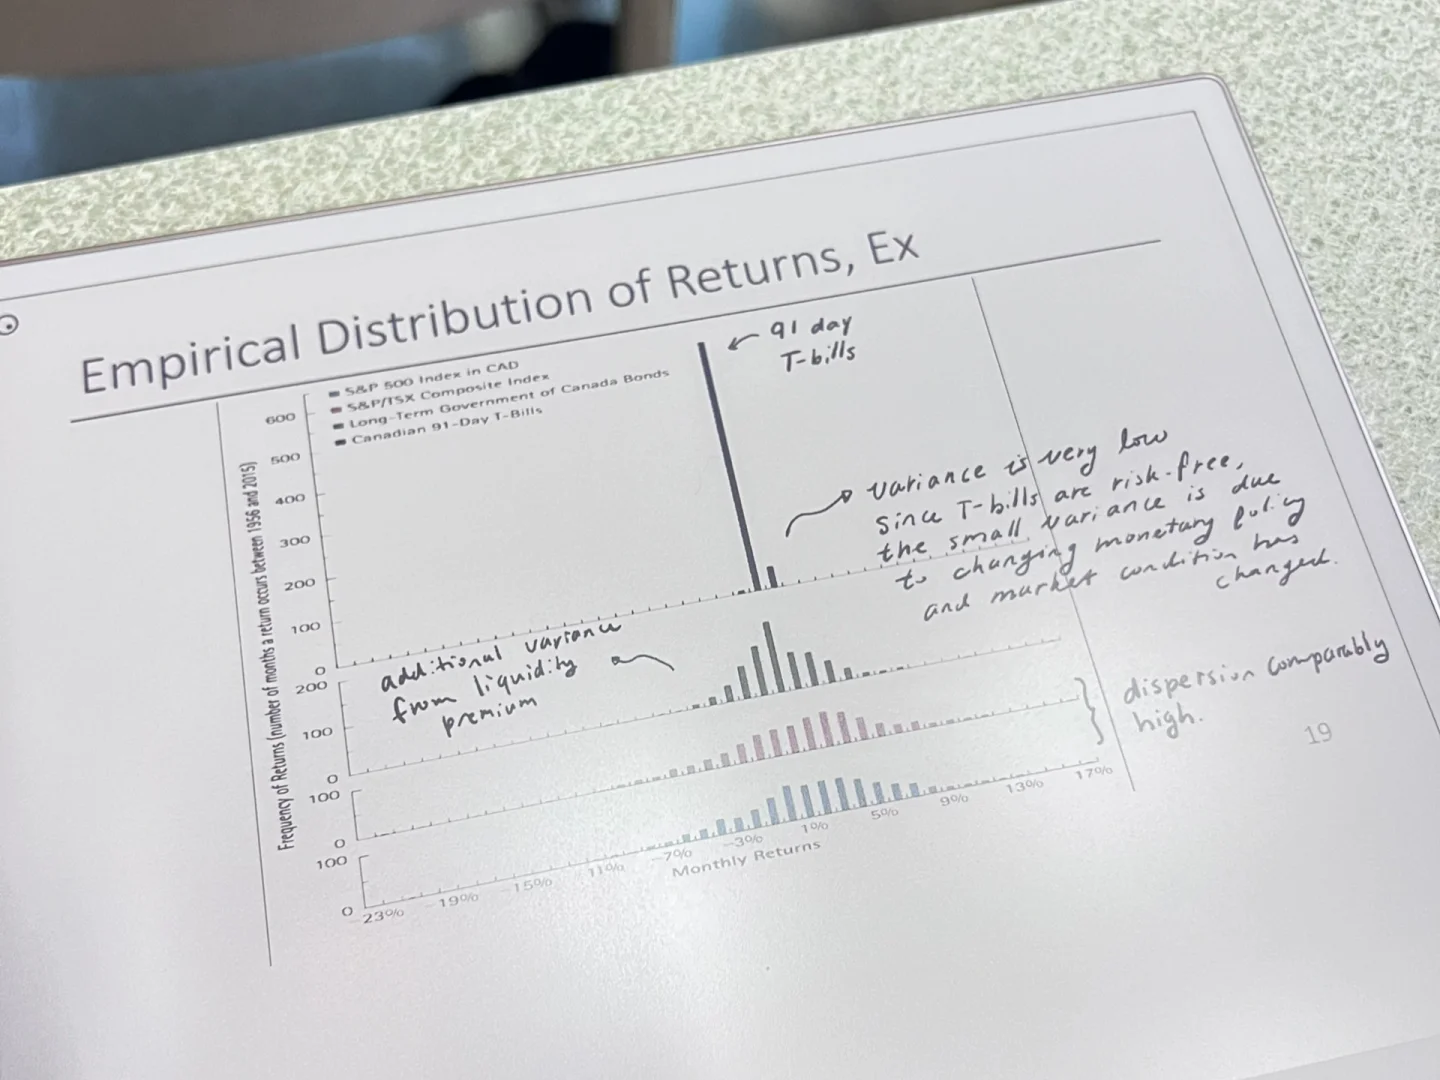 Empirical Distribution of Returns, Ex
S&P 500 Index in CAD
S&P/TSX Composite Index
Long-Term Government of Canada Bonds
Canadian 91-Day T-Bills
91 day
T-bills
Frequency of Returns (number of months a return occurs between 1956 and 2015)
600
500
400
300
200
100
0
variance is very low
since T-bills are risk-free,
the small variance is due
to changing monetary policy
and market condition has
changed.
additional variance
from liquidity
premium
200
100
0
dispersion comparably
high.
100
0
100
0
-23%
-19%
-15%
-11%
-7%
-3%
1%
5%
9%
13%
17%
Monthly Returns
19